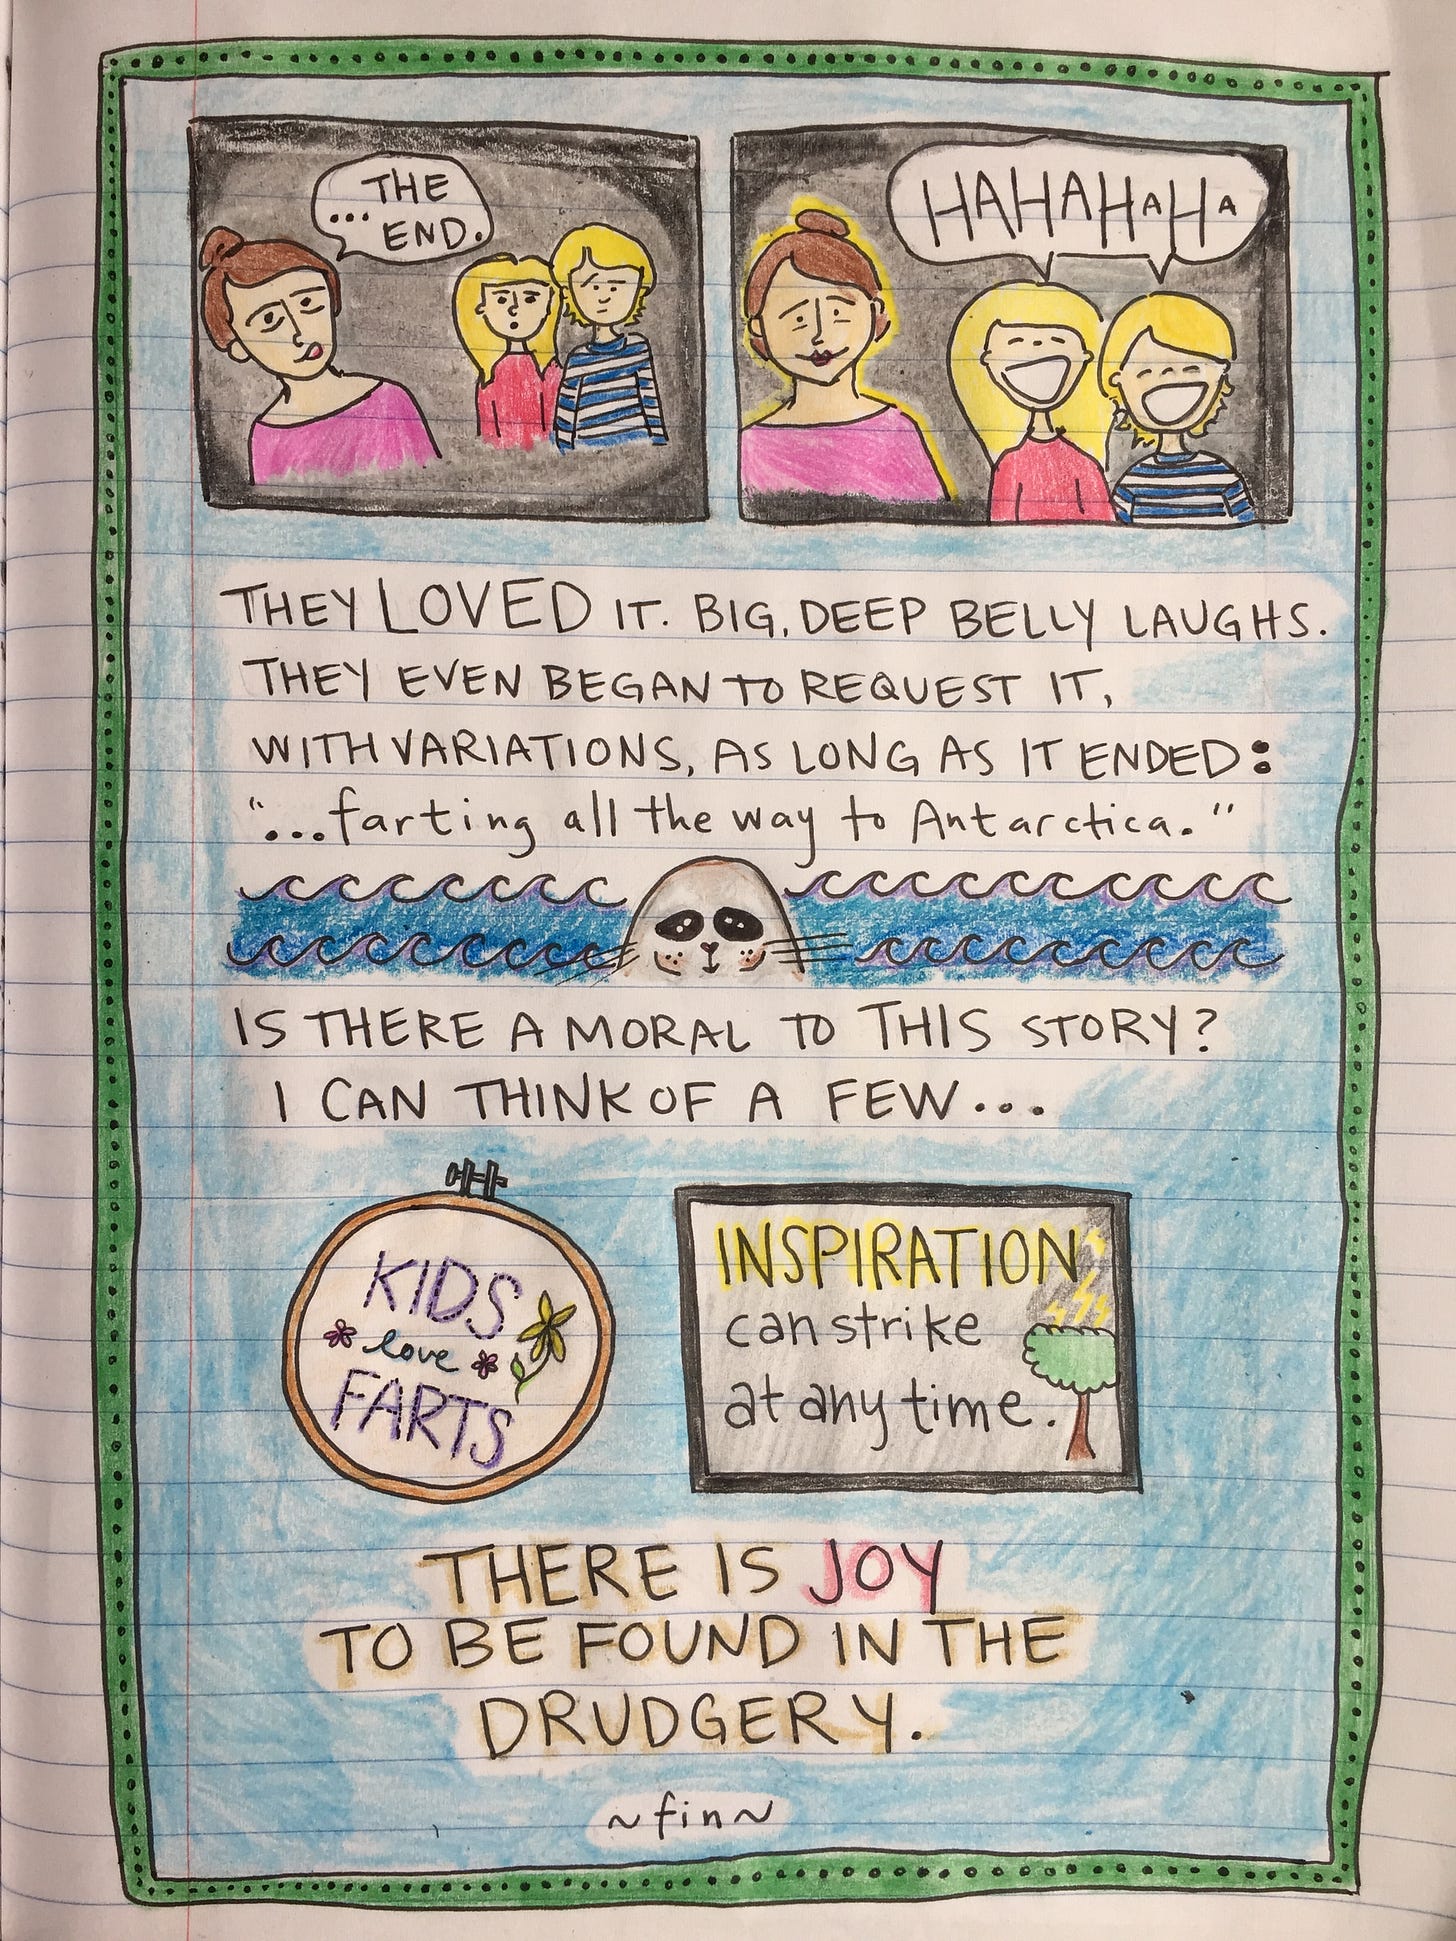 ...THE
END.
HAHAHAHA
THEY LOVED IT. BIG, DEEP BELLY LAUGHS.
THEY EVEN BEGAN TO REQUEST IT,
WITH VARIATIONS, AS LONG AS IT ENDED:
"...farting all the way to Antarctica."
IS THERE A MORAL TO THIS STORY?
I CAN THINK OF A FEW...
KIDS
love
FARTS
INSPIRATION
can strike
at any time.
THERE IS JOY
TO BE FOUND IN THE
DRUDGERY.
~fin~